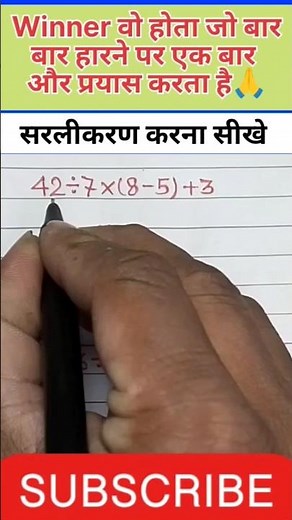 Winner वो होता जो बार
बार हारने पर एक बार
और प्रयास करता है🙏
सरलीकरण करना सीखे
42÷7×(8-5)+3
SUBSCRIBE